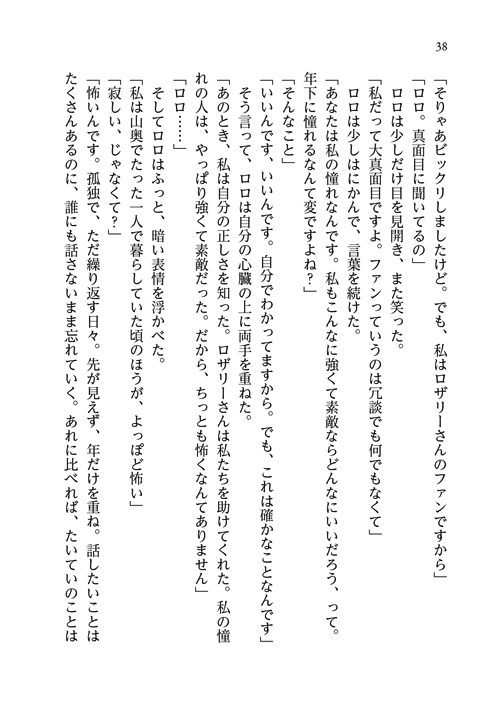 38
「そりゃあビックリしましたけど。でも、私はロザリーさんのファンですから」
「ロロ。真面目に聞いてるの」
　ロロは少しだけ目を見開き、また笑った。
「私だって大真面目ですよ。ファンっていうのは冗談でも何でもなくて」
　ロロは少しはにかんで、言葉を続けた。
「あなたは私の憧れなんです。私もこんなに強くて素敵ならどんなにいいだろう、って。
年下に憧れるなんて変ですよね？」
「そんなこと」
「いいんです、いいんです。自分でわかってますから。でも、これは確かなことなんです」
　そう言って、ロロは自分の心臓の上に両手を重ねた。
「あのとき、私は自分の正しさを知った。ロザリーさんは私たちを助けてくれた。私の憧
れの人は、やっぱり強くて素敵だった。だから、ちっとも怖くなんてありません」
「ロロ……」
　そしてロロはふっと、暗い表情を浮かべた。
「私は山奥でたった一人で暮らしていた頃のほうが、よっぽど怖い」
「寂しい、じゃなくて？」
「怖いんです。孤独で、ただ繰り返す日々。先が見えず、年だけを重ね。話したいことは
たくさんあるのに、誰にも話さないまま忘れていく。あれに比べれば、たいていのことは